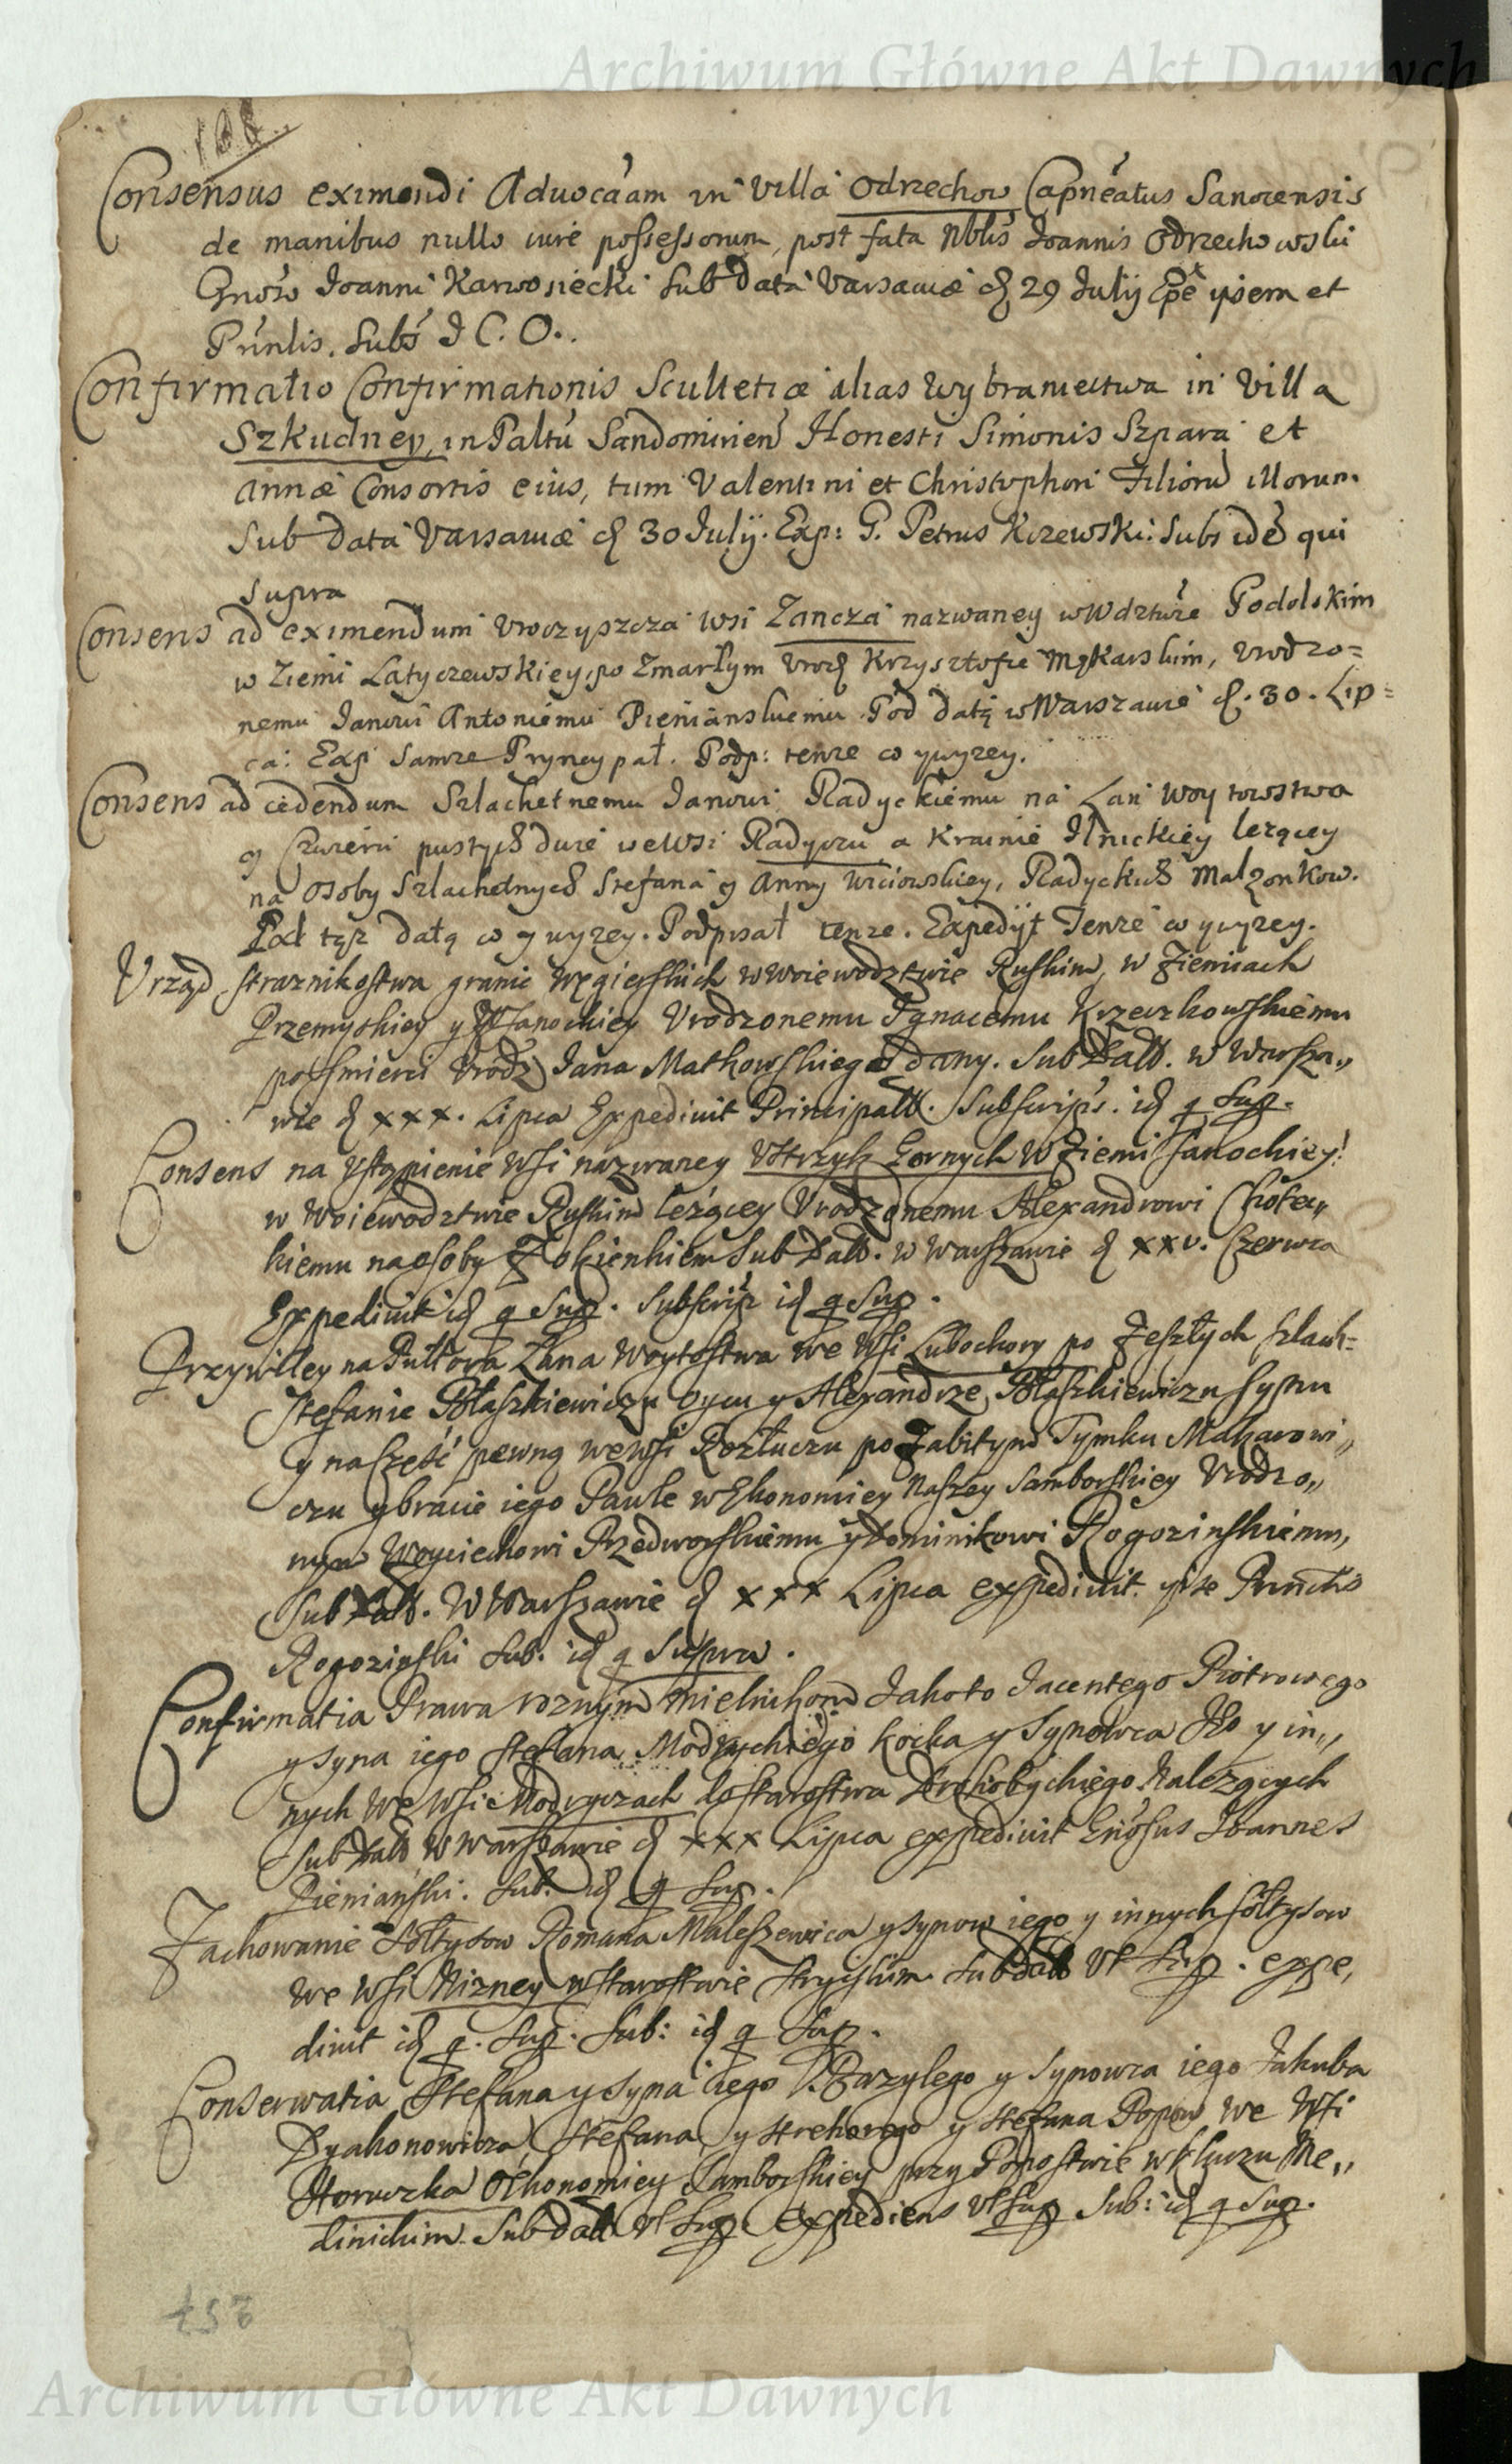 Archiwum Główne Akt Dawnych
188
Consensus eximendi Aduocãam in villa Odrzechow Capnẽatus Sanocensis
de manibus nullo iure possessorum, post fata Nblis Joannis Odrzechowski
Gnoso Joanni Karwosiecki Sub Data Varsaviæ d 29 July Expe ipsem et
Prinlis. Subs J C. O..
Confirmatio Confirmationis Scultetiæ alias Wybraniectwa in Villa
Szkudney, in Paltu Sandomirien Honesti Simonis Szpara et
Annæ Consortis eius, tum Valentini et Christophori Filioru illorum.
Sub data Varsaviæ d 30 July. Exp: G. Petrus Kczewski. Subs idẽ qui
supra
Consens ad eximendum Vroczyszcza Wsi Zancza nazwaney w Wdztwie Podolskim
w Ziemi Latyczewskiey, po Zmarłym Vrodz Krzysztofie Mękarskim, Vrodzo=
nemu Janowi Antoniemu Pieniansluemu Pod datą w Warszawie d. 30. Lip=
ca: Exp Samze Pryncypał. Podp: tenze co ywyzey.
Consens ad cedendum Szlachetnemu Janowi Radyckiemu na Łan Woytowstwa
y Czwierci pustych dwie we Wsi Radyczu a Krainie Ilnickiey lezącey
na Osoby Szlachetnych Stefana y Anny Wciowskiey, Radyckich Małzonkow.
Pod tąz datą co y wyzey. Podpisał tenze. Expedyt Tenze co ywyzey.
Vrząd straznikostwa granic Węgierskich w Woiewodztwie Ruskim, w Ziemiach
Przemyskiey y Sanockiey Vrodzonemu Ignacemu Krzeczkowskiemu
po smierci Vrodz Jana Matkowskiego dany. Sub Datt. w Warsza,,
wie d xxx. Lipca Expediuit Principalt. Subscrips. id q Sup.
Consens na Vstąpienie Wsi nazwaney Vstrzyk Gornych W Ziemi Sanockiey
w Woiewodztwie Ruskim leżącey Vrodzonemu Alexandrowi Chołec,,
kiemu na osoby Z okienkiem Sub Datt. w Warszawie d xxv. Czerwca
Expediuit id q Sup. Subscrip id q Sup.
Przywiley na Pułtora Łana Woytostwa we Wsi Lubochory po Zeszłych szlach=
Stefanie Błaszkiewiczu oycu y Alexandrze Błaszkiewiczu synu
y na Część pewną we Wsi Rozłuczu po Zabitym Tymku Makarowi,,
czu y bracie iego Pawle w Ekonomiey Naszey Samborskiey Vrodzo,,
nym Woyciechowi Przedworskiemu y Dominikowi Rogozinskiemu,
Sub Datt. W Warszawie d xxx Lipca expediuit ipse Princtis
Rogozinski Sub. id q Supra.
Confirmatia Prawa roznym mielnikom Jakoto Jacentego Piotrowego
y syna iego Stefana Modryckiego Kocka y Synowca Jło y in,,
nych we Wsi Modryczach do starostwa Drohobyckiego Nalezących
Sub Datt W Warszawie d xxx Lipca expediuit Gnosus Joannes
Pieniański. Sub. id q Sup.
Zachowanie Sołtysow Romana Maleszewica y synow iego y innych sołtysow
we Wsi Nizney w starostwie Stryiskim Sub datt Vt Sup. expe,
diuit id q. Sup. Sub: id q Sup.
Conserwatia Stefana y syna iego Bazylego y Synowca iego Jakuba
Dyakonowicza Stefana y Strehorego y Stefana Popow we Wsi
Horuczka Oekonomiey Samborskiey przy Popostwie w Kluczu Me,,
dinickim. Sub datt Vt Sup. expediens Vt Sup Sub: id q Sup.
257
Archiwum Główne Akt Dawnych